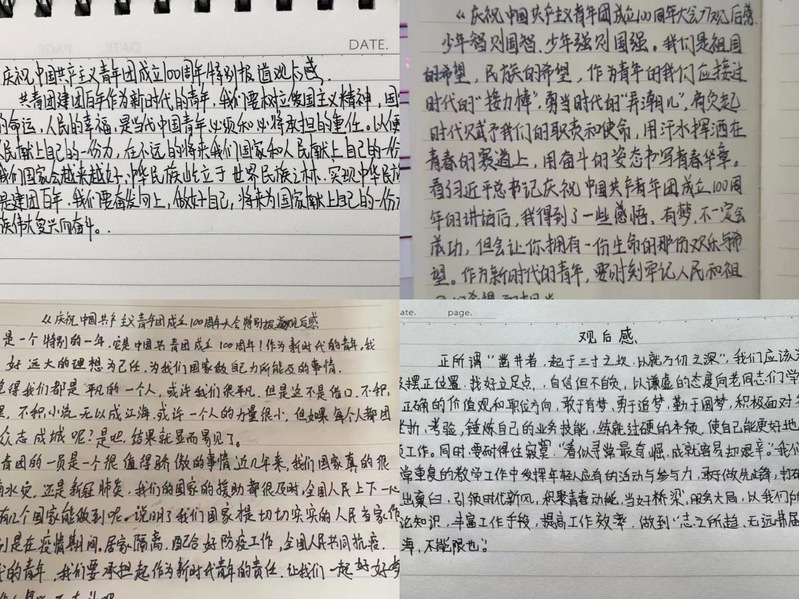 DATE.
庆祝中国共产主义青年团成立100周年特别报道观后感.
共青团建团百年作为新时代的青年,我们要树立爱国主义精神,国
的命运,人民的幸福,是当代中国青年必须和必将承担的重任。以便
人民献上自己的一份力,在不远的将来我们国家和人民献上自己的一份
我们国家会越来越好、中华民族屹立于世界民族之林.实现中华民族
是建团百年.我们要奋发向上,做好自己,将来为国家献上自己的一份力
族伟大复兴而奋斗。
《庆祝中国共产主义青年团成立100周年大会》观后感.
少年智则国智.少年强则国强。我们是祖国
的希望,民族的希望,作为青年的我们应接过
时代的"接力棒",勇当时代的"弄潮儿",肩负起
时代赋予我们的职责和使命,用汗水挥洒在
青春的赛道上,用奋斗的姿态书写青春华章。
看习近平总书记庆祝中国共产青年团成立100周
年的讲话后,我得到了一些感悟、有梦,不一定会
成功,但会让你拥有一份生命的那份欢乐与希
望。作为新时代的青年,要时刻牢记人民和祖
《庆祝中国共产主义青年团成立100周年大会特别报道》观后感
是一个特别的一年,它是中国共青团成立100周年!作为新时代的青年,我
好远大的理想为己任,为我们国家做自己力所能及的事情.
觉得我们都是平凡的一个人,或许我们很平凡.但是这不是借口.不积
里,不积小流无以成江海,或许一个人的力量很小,但如果每个人都团
众志成城呢?是吧.结果就显而易见了。
青团的一员是一个很值得骄傲的事情,近几年来,我们国家真的很
雨水灾,还是新冠肺炎,我们的国家的援助都很及时,全国人民上下一心
有几个国家能做到呢,说明了我们国家是切切实实的人民当家作
别是在疫情期间,居家隔离,配合好防疫工作,全国人民共同抗疫.
代的青年,我们要承担起作为新时代青年的责任.让我们一起好好
ate. page.
观后感
正所谓"凿井者,起于三寸之坎,以就万仞之深",我们应该
摆正位置、找好立足点,自信但不自负,以谦虚的态度向老同志们学
正确的价值观和职位方向,敢于有梦、勇于追梦,勤于圆梦,积极面对
挫折、考验,锤炼自己的业务技能,练就过硬的本领,使自己能更好地
项工作。同时,要耐得住寂寞."看似寻常最奇崛,成就容易却艰辛。"我们
常重复的教学工作中发挥年轻人应有的活动与参与力,敢于做先锋,
出窠臼,引领时代新风,积聚青春动能,当好桥梁,服务大局,以我们所
论知识,丰富工作手段,提高工作效率,做到"志之所趋,无远弗届
海,不能限也"。